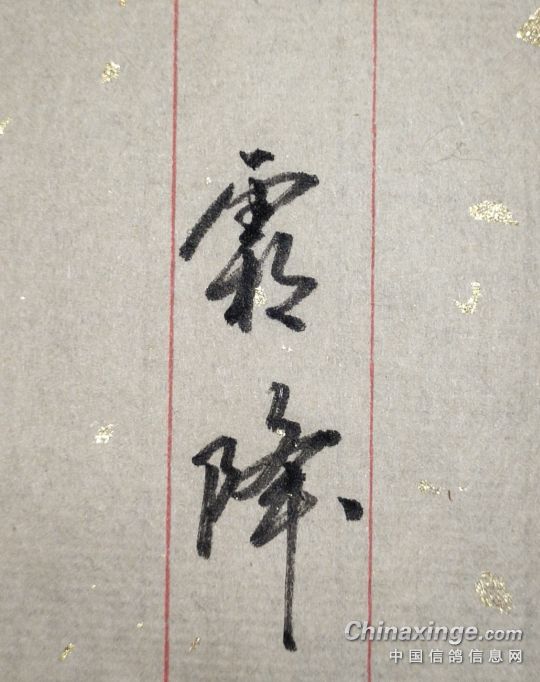 霜降
Chinaxinge.com
中国信鸽信息网